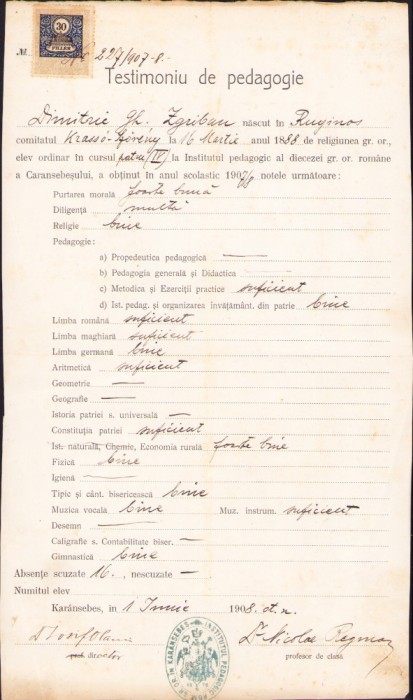 30
FILLÉR
№ 227/907-8.
Testimoniu de pedagogie
Dimitrie Gh. Zgriban născut în Ruginos
comitatul Krassó-Szörény la 16 Martie anul 1888 de religiunea gr. or.,
elev ordinar în cursul patru (IV) la Institutul pedagogic al diecezei gr. or. române
a Caransebeșului, a obținut în anul scolastic 1907/8 notele următoare:
Purtarea morală foarte bună
Diligență multă
Religie bine
Pedagogie:
a) Propedeutica pedagogică —
b) Pedagogia generală și Didactica —
c) Metodica și Exerciții practice suficient
d) Ist. pedag. și organizarea învățământ. din patrie bine
Limba română suficient
Limba maghiară suficient
Limba germană bine
Aritmetică suficient
Geometrie —
Geografie —
Istoria patriei s. universala —
Constituția patriei suficient
Ist. naturală, Chemie, Economia rurală foarte bine
Fizica bine
Igienă —
Tipic și cânt. bisericească bine
Muzica vocală bine Muz. instrum. suficient
Desemn —
Caligrafie s. Contabilitate biser. —
Gimnastică bine
Absențe scuzate 16., nescuzate —
Numitul elev
Karánsebes, în 1 Iunie 1908. st. n.
Dr Nicolae
director profesor de clasă